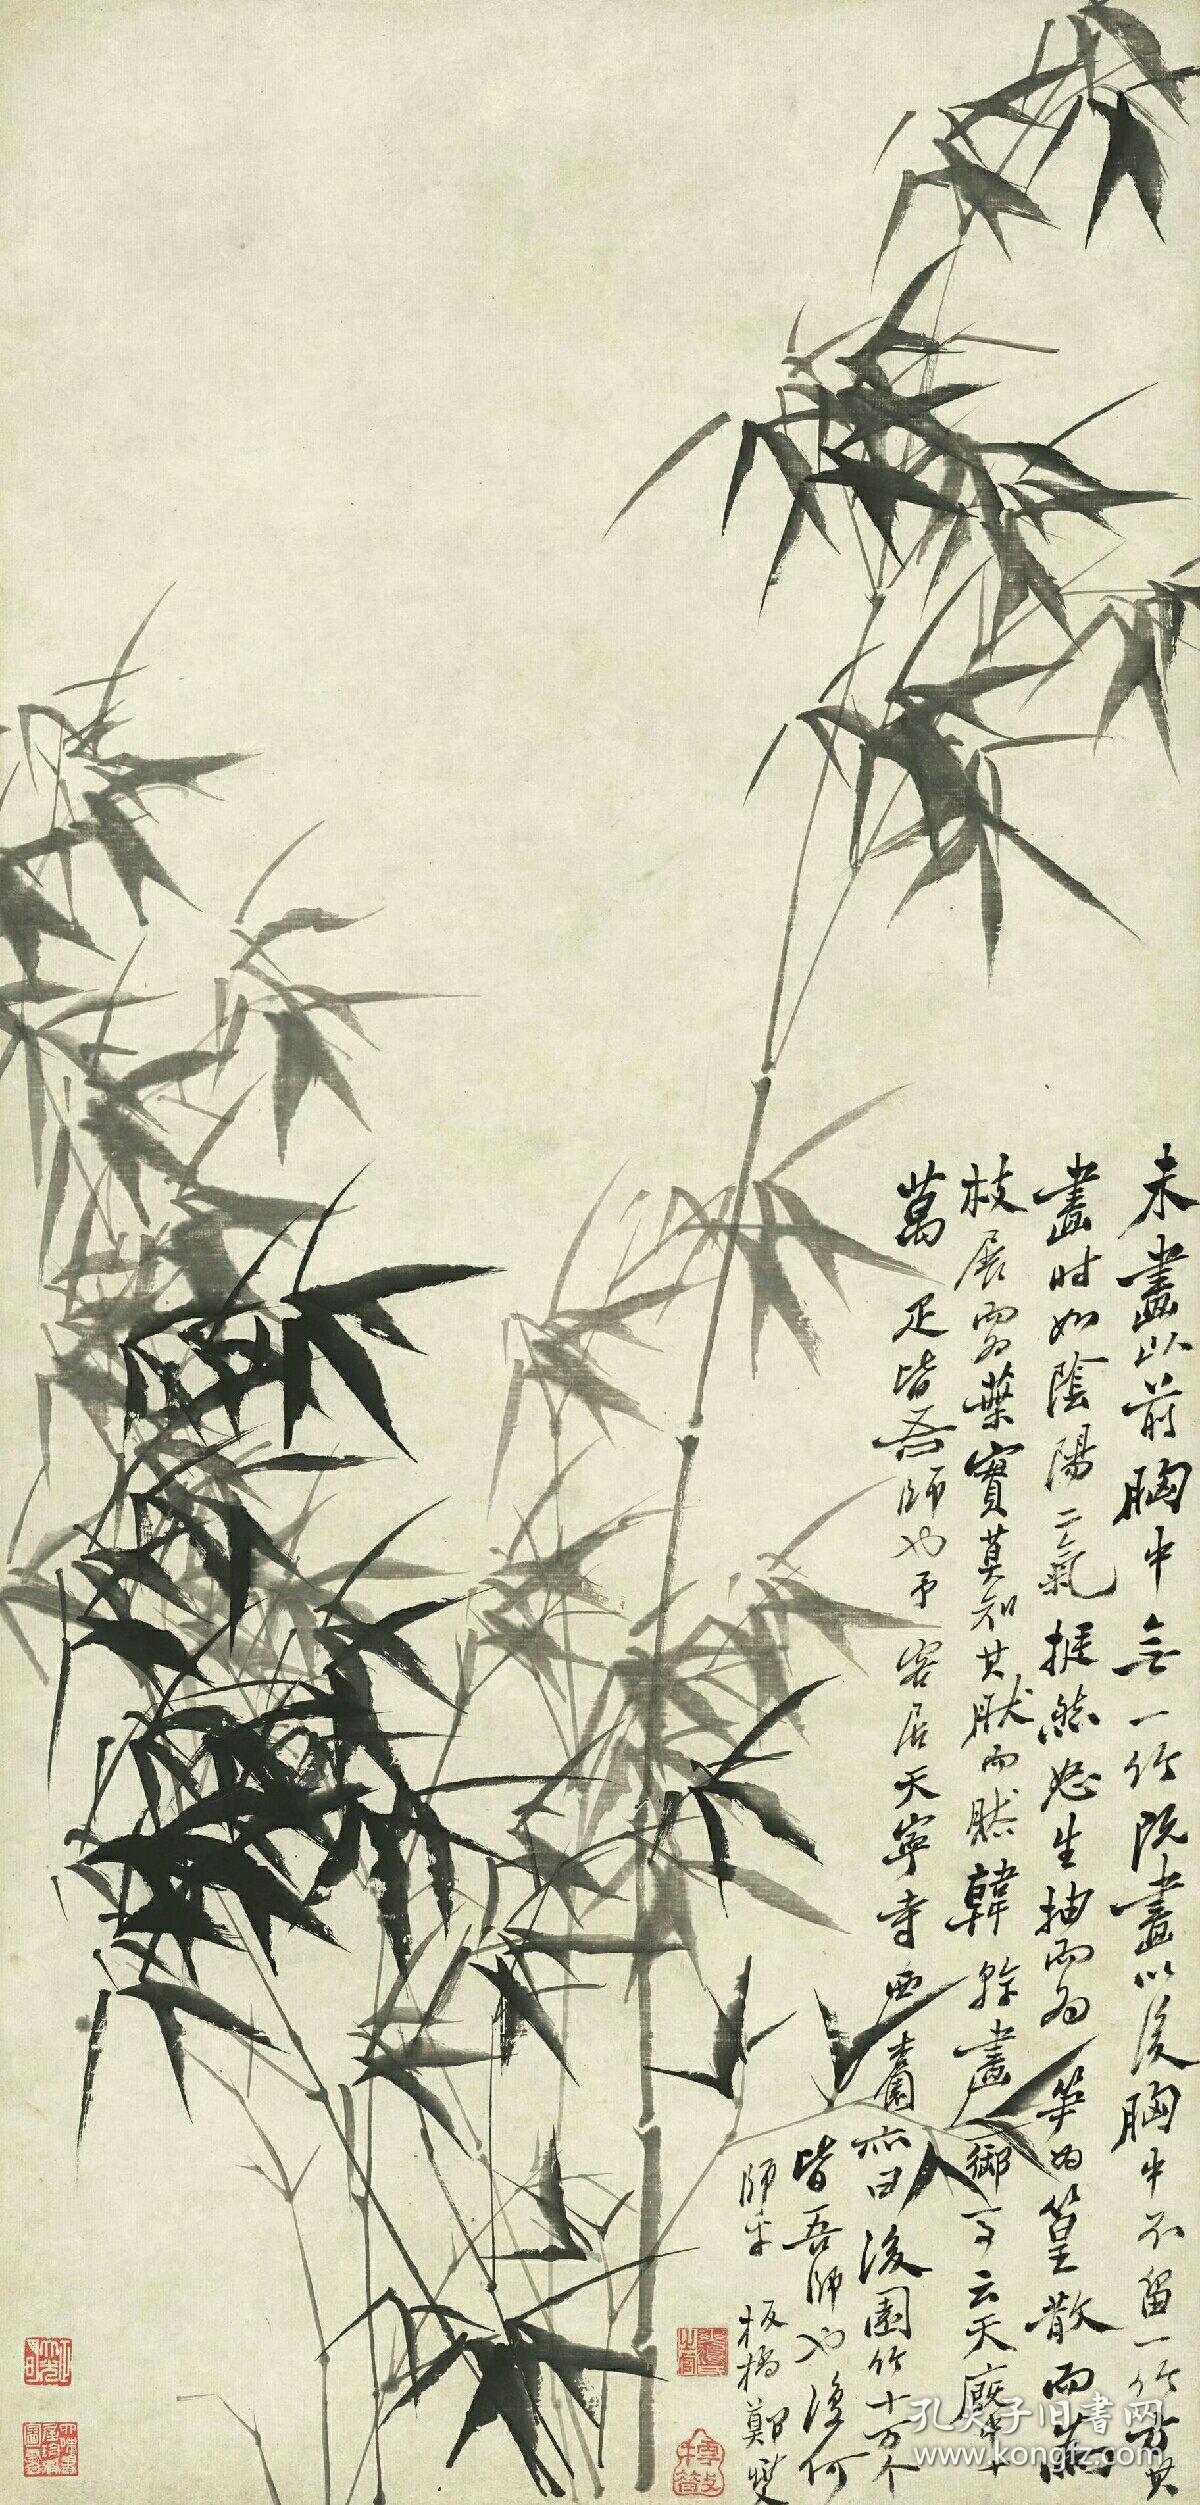 未畫以前胸中無一竹既畫以後胸中不留一竹方其
畫時如陰陽二氣挺然怒生抽而為笋為篁散而為
枝展而為葉實莫知其然而然韓幹畫御馬云天廐中十
萬疋皆吾師也予客居天寧寺西杏園亦曰後園竹十万个
皆吾師也復何
師乎板橋鄭燮
孔夫子旧书网
www.kongfz.com